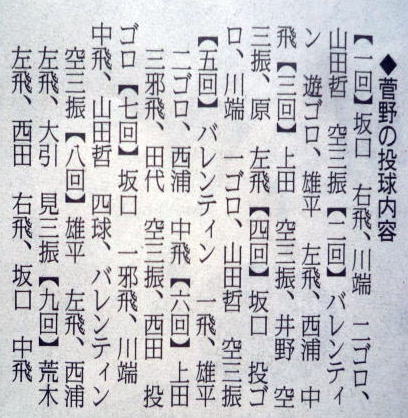 ◆菅野の投球内容
【一回】坂口　右飛、川端　二ゴロ、
山田哲　空三振【二回】バレンティ
ン　遊ゴロ、雄平　左飛、西浦　中
飛【三回】上田　空三振、井野　空
三振、原　左飛【四回】坂口　投ゴ
ロ、川端　一ゴロ、山田哲　空三振
【五回】バレンティン　一飛、雄平
二ゴロ、西浦　中飛【六回】上田
三邪飛、田代　空三振、西田　投
ゴロ【七回】坂口　一邪飛、川端
中飛、山田哲　四球、バレンティン
空三振【八回】雄平　左飛、西浦
左飛、大引　見三振【九回】荒木
左飛、西田　右飛、坂口　中飛